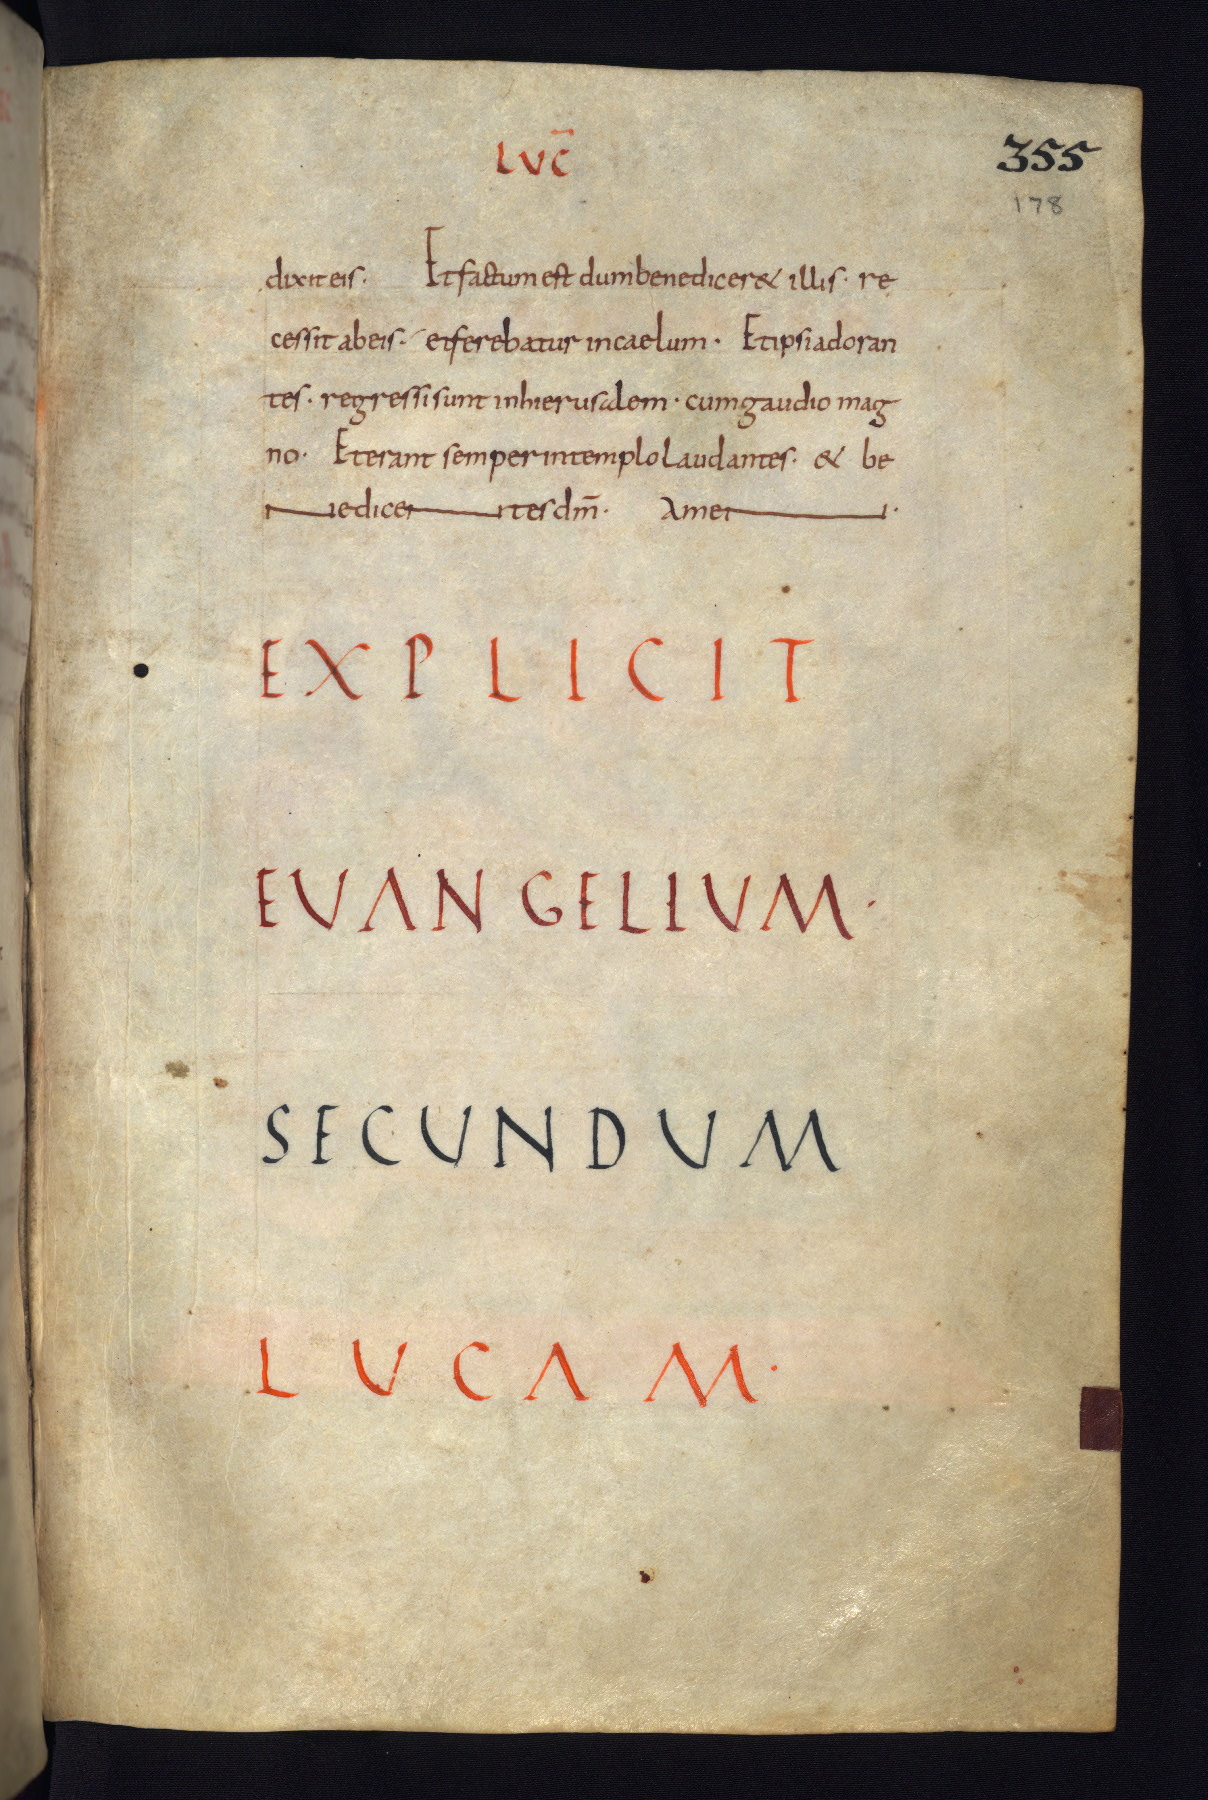 LUC̄
355
178
dixit eis. Et factum est dum benediceret illis. re
cessit ab eis. et ferebatur in caelum. Et ipsi adoran
tes. regressi sunt in hierusalem. cum gaudio mag
no. Et erant semper in templo laudantes. & be
nedicentes dm̄. Amen.
EXPLICIT
EUANGELIUM.
SECUNDUM
LUCAM.